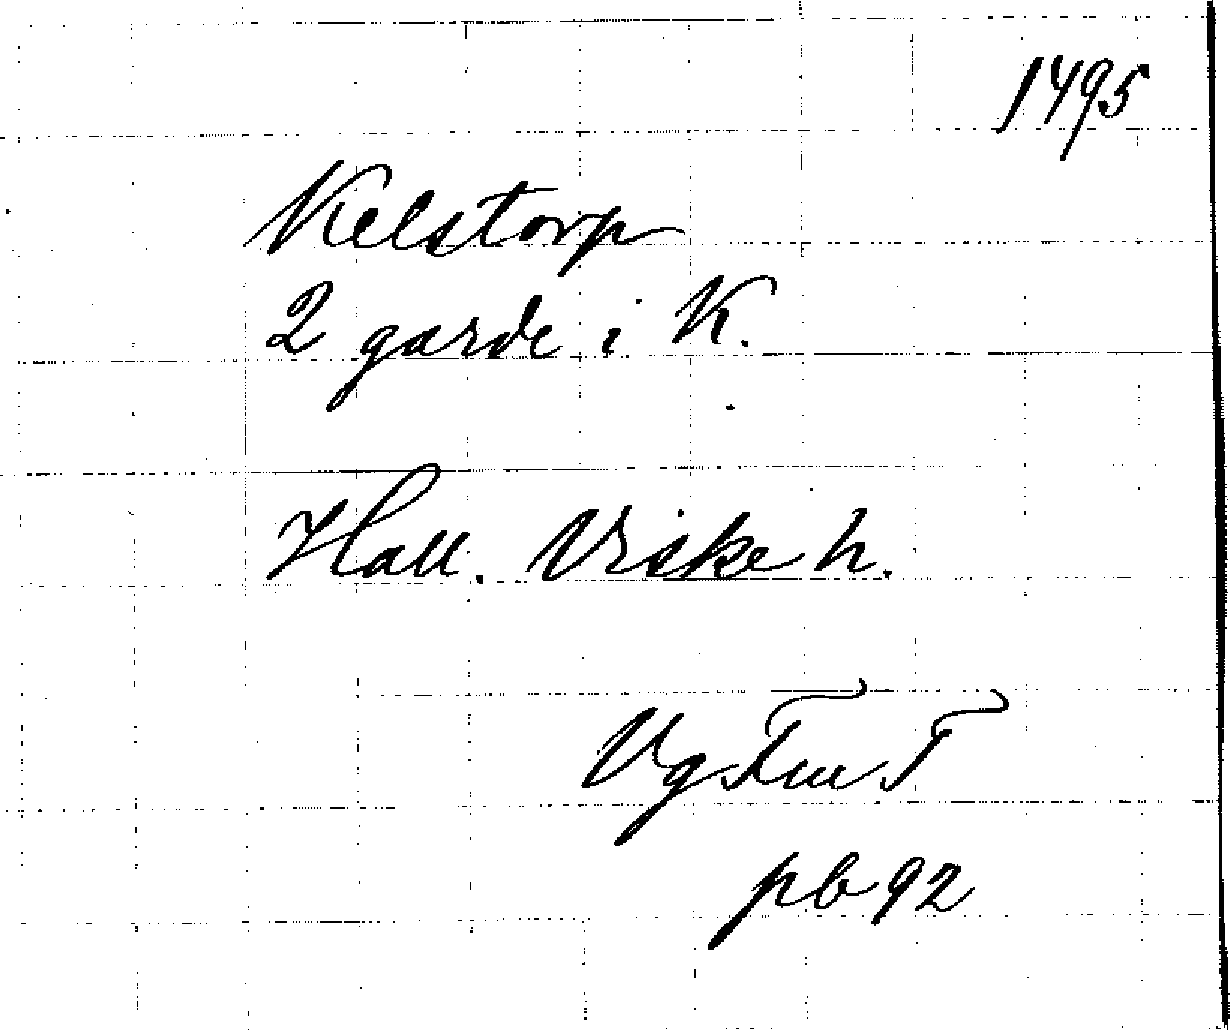 1495
Kelstorp
2 garde i K.
Hall. Viske h.
Vg Fm T
pb 92